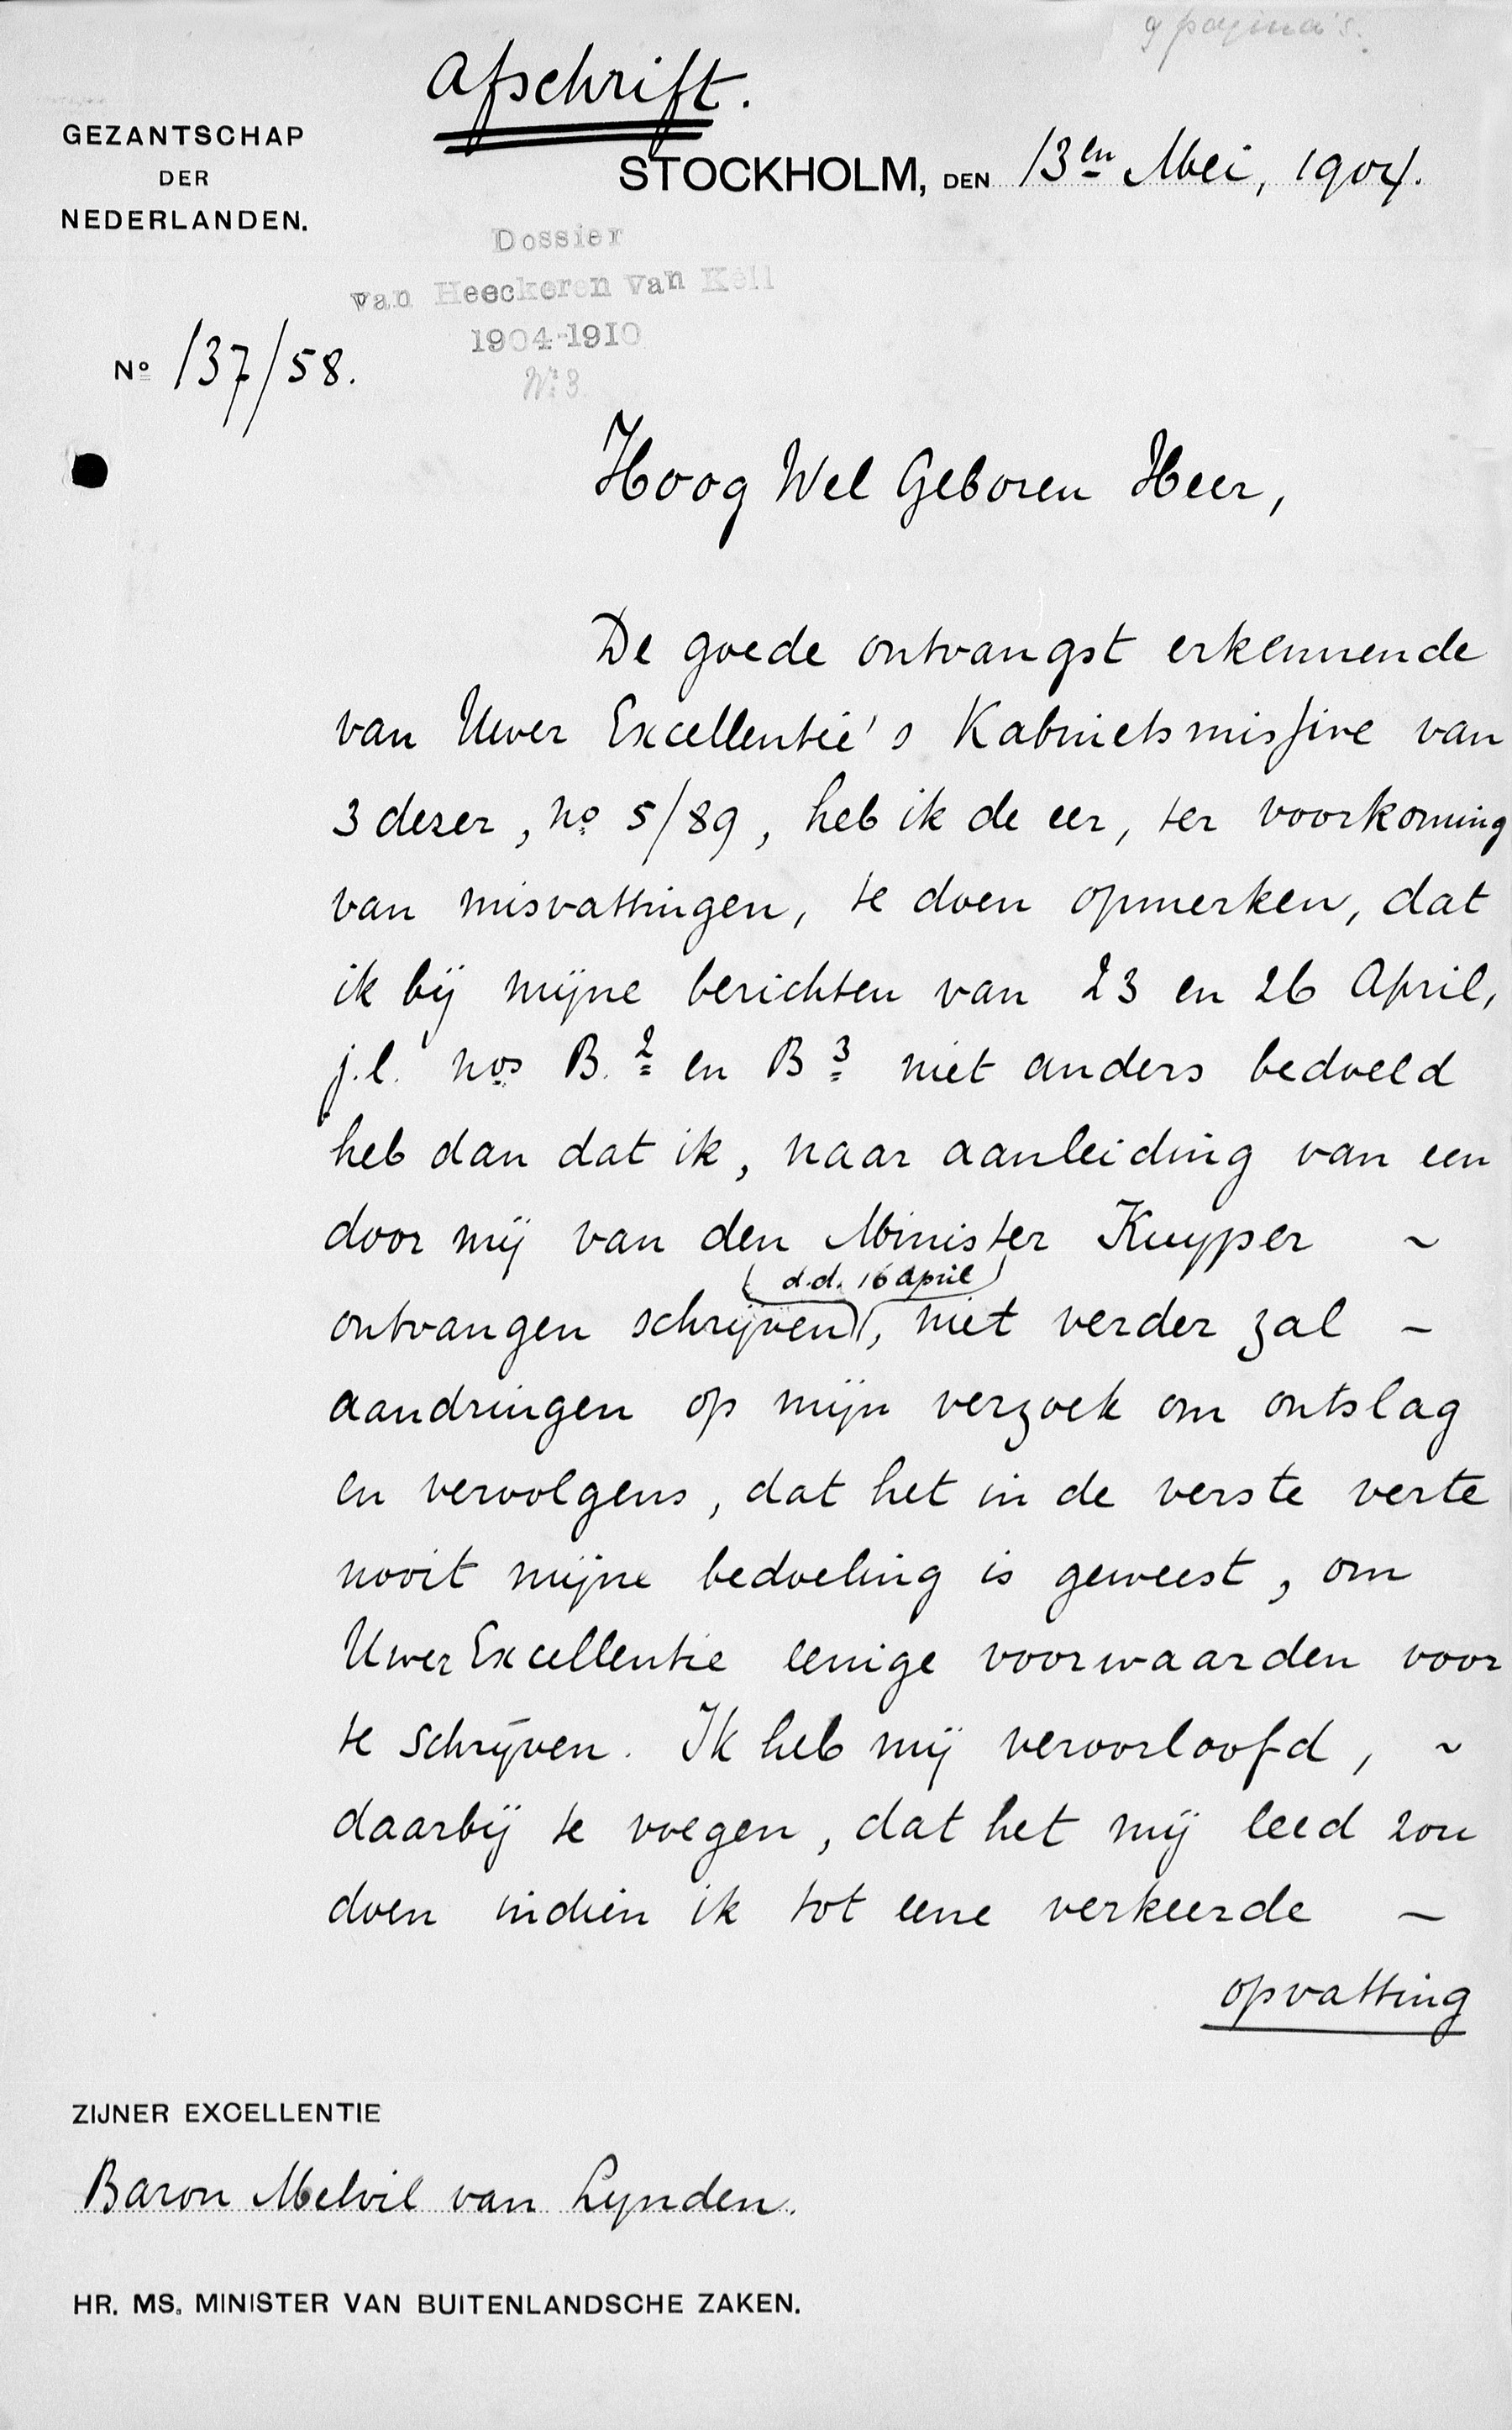 9 pagina's.
Afschrift.
GEZANTSCHAP
DER
NEDERLANDEN.
STOCKHOLM, DEN 13en Mei, 1904.
Dossier
van Heeckeren van Kell
1904-1910
No 3
No 137/58.
Hoog Wel Geboren Heer,
De goede ontvangst erkennende
van Uwer Excellentie's Kabinetsmissive van
3 dezer, no 5/89, heb ik de eer, ter voorkoming
van misvattingen, te doen opmerken, dat
ik bij mijne berichten van 23 en 26 April,
j.l. nos B. 2 en B 3 niet anders bedoeld
heb dan dat ik, naar aanleiding van een
door mij van den Minister Kuyper ~
(d.d. 16 april)
ontvangen schrijven, niet verder zal -
aandringen op mijn verzoek om ontslag
en vervolgens, dat het in de verste verte
nooit mijne bedoeling is geweest, om
Uwer Excellentie eenige voorwaarden voor
te schrijven. Ik heb mij veroorloofd, ~
daarbij te voegen, dat het mij leed zou
doen indien ik tot eene verkeerde -
opvatting
ZIJNER EXCELLENTIE
Baron Melvil van Lynden.
HR. MS. MINISTER VAN BUITENLANDSCHE ZAKEN.